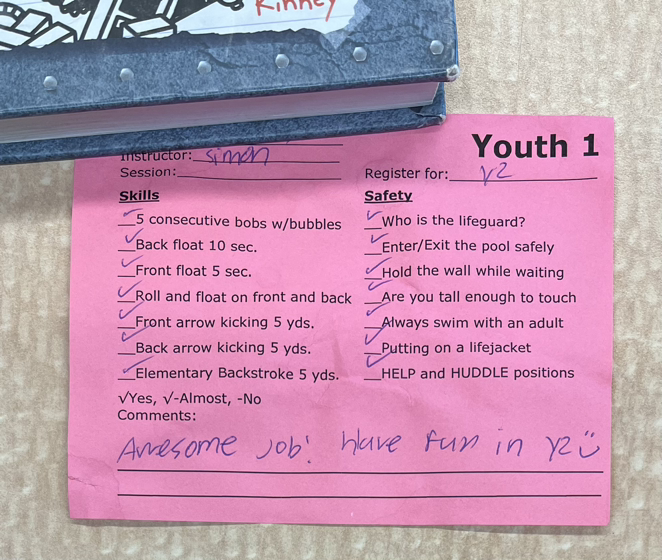 Kinney
Youth 1
Instructor: Simon
Session:
Register for: Y2
Skills
✓5 consecutive bobs w/bubbles
✓Back float 10 sec.
✓Front float 5 sec.
✓Roll and float on front and back
✓Front arrow kicking 5 yds.
✓Back arrow kicking 5 yds.
✓Elementary Backstroke 5 yds.
Safety
✓Who is the lifeguard?
✓Enter/Exit the pool safely
✓Hold the wall while waiting
✓Are you tall enough to touch
✓Always swim with an adult
✓Putting on a lifejacket
✓HELP and HUDDLE positions
√Yes, √-Almost, -No
Comments:
Awesome Job! Have fun in Y2 :)